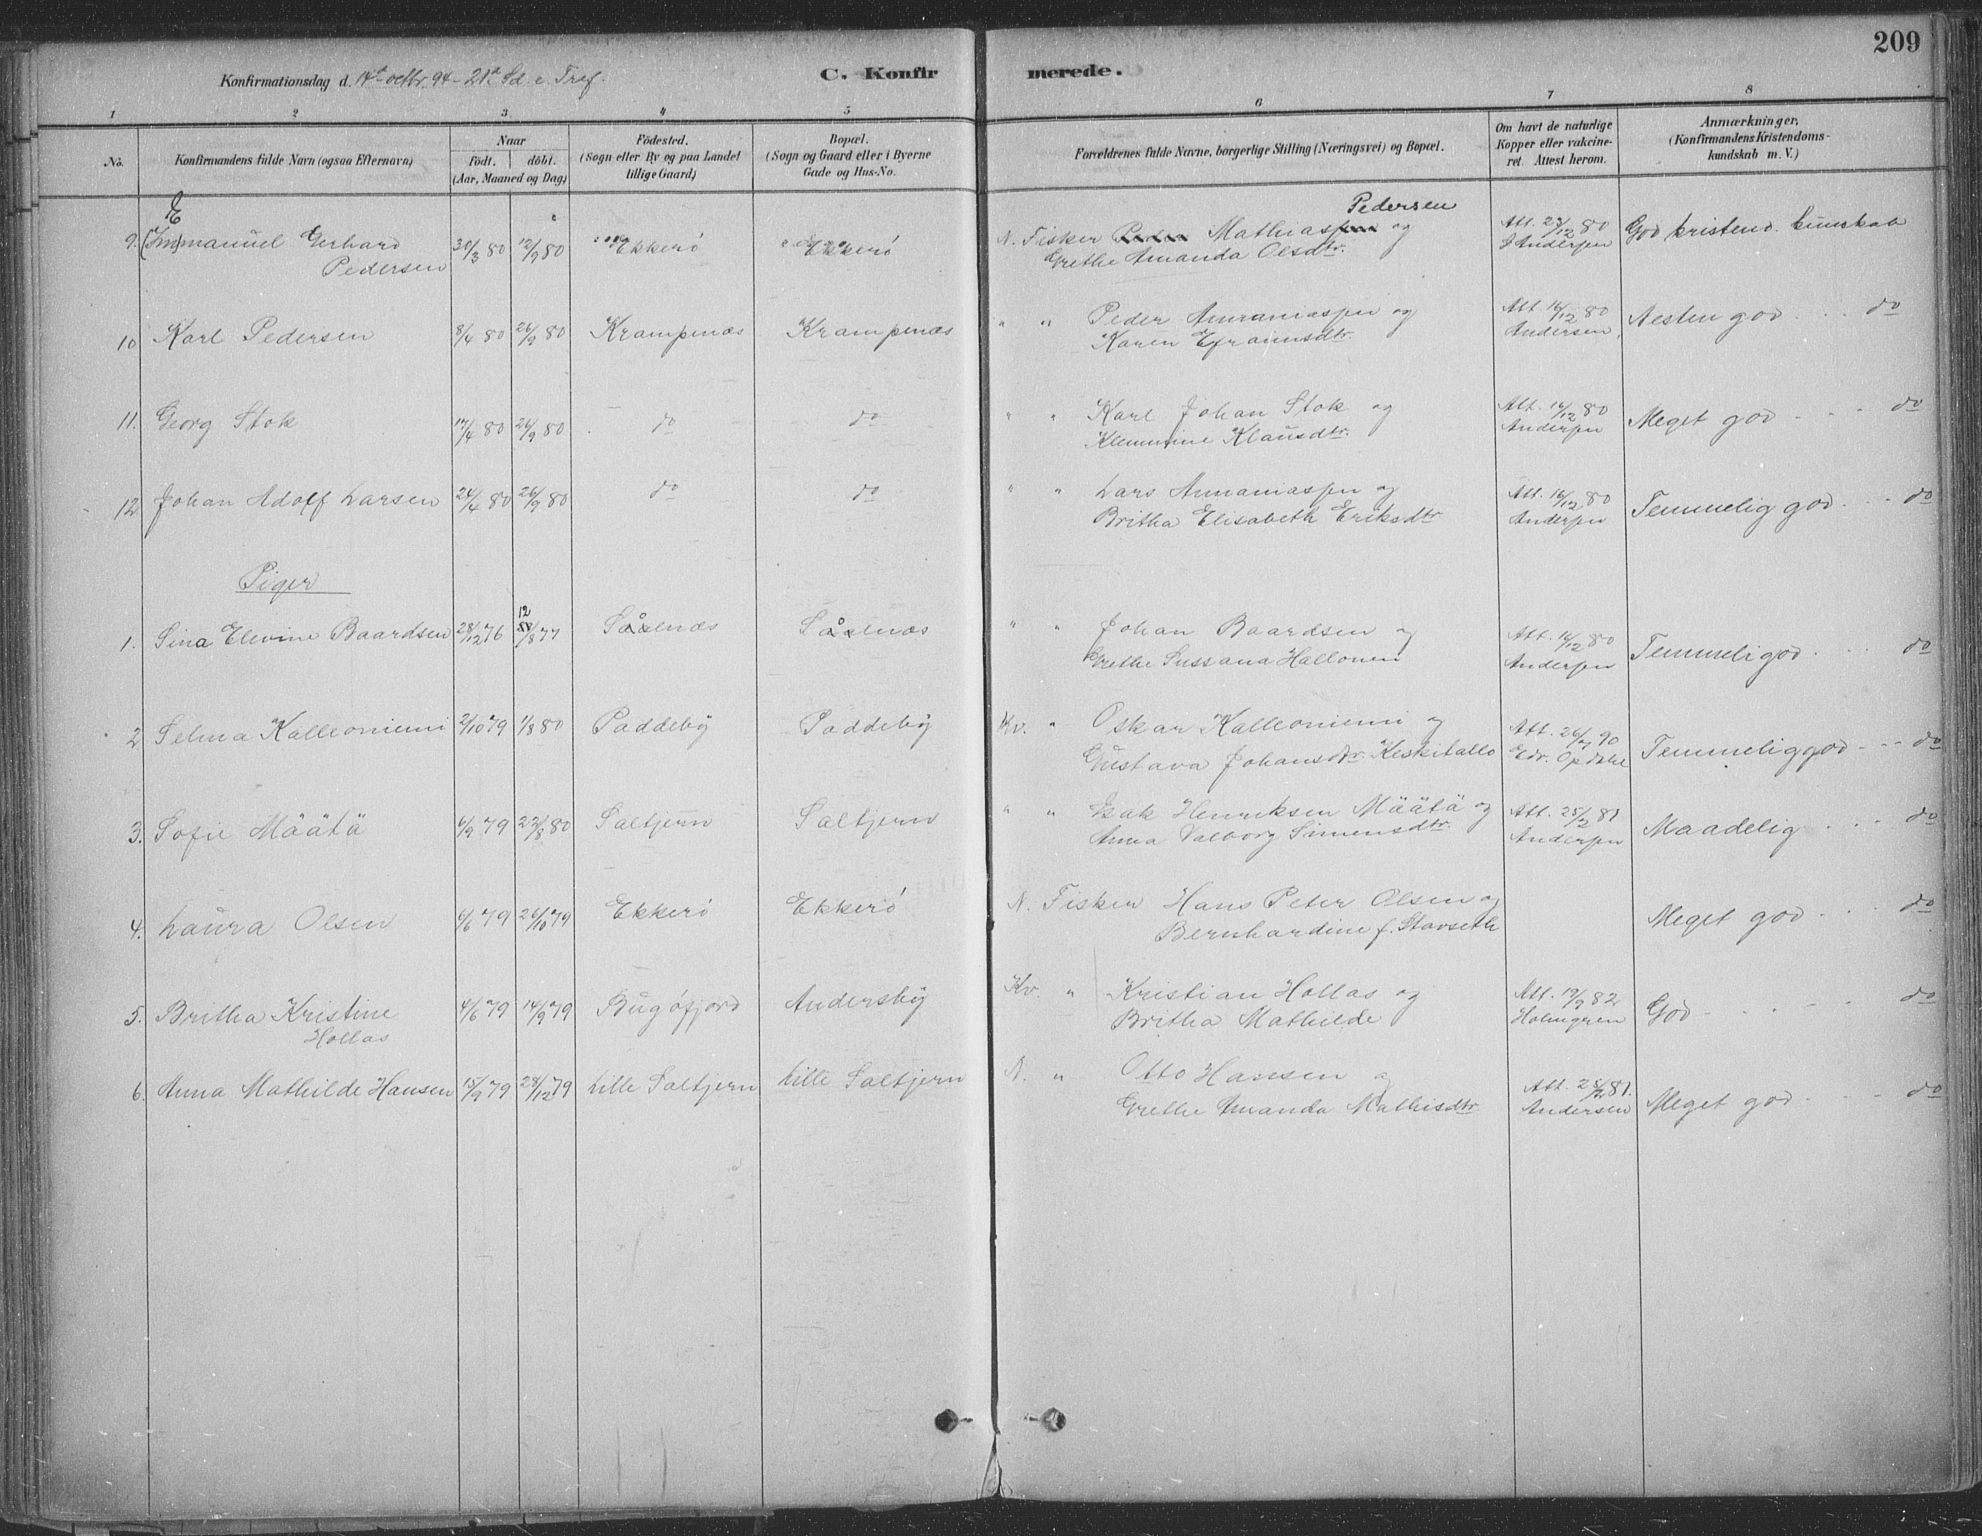 209
Konfirmationsdag d. 14de octbr. 94 - 21de Sd. e. Tref. C. Konfirmerede.
1 2 3 4 5 6 7 8
No. Konfirmandens fulde Navn (ogsaa Efternavn) Naar Födt. döbt. (Aar, Maaned og Dag) Födested. (Sogn eller By og paa Landet tillige Gaard) Bopæl. (Sogn og Gaard eller i Byerne Gade og Hus-No. Forældrenes fulde Navne, borgerlige Stilling (Næringsvei) og Bopæl. Om havt de naturlige Kopper eller vakcineret. Attest herom. Anmærkninger, (Konfirmandens Kristendomskundskab m. V.)
9. (Im)manuel Gerhard 30/3 80 12/9 80 Ekkerö Ekkerö N. Fisker Mathias Pedersen og Att. 23/12 80 God kristend. kunskab
Pedersen Grethe Amanda Olsdtr. Anderssen
10 Karl Pedersen 8/4 80 26/9 80 Krampenæs Krampenæs " " Peder Annaniassen og Att. 16/12 80 Nesten god . . . do
Karen Efraimsdtr. Andersen
11. Georg Stok 17/4 80 26/9 80 do do " " Karl Johan Stok og Att. 16/12 80 Meget god - - - do
Klemmine Klausdtr. Anderssen
12. Johan Adolf Larsen 24/4 80 26/9 80 do do " " Lars Annaniassen og Att. 16/12 80 Temmelig god . - - do
Britha Elisabeth Eriksdtr Anderssen
Piger
1. Sina Elevine Baardsen 28/12 76 12/8 77 Saalnæs Saalnæs " " Johan Baardsen og Att. 16/12 80 Temmeli god . . . do
Grethe Sussana Hallonen Anderssen
2 Selma Kalleoniemi 2/10 79 1/8 80 Paddeby Paddeby Kv. " Oskar Kalleoniemi og Att. 26/7 90 Temmelig god - - - do
Gustava Johansdtr. Keskitallo Edv. Opdahl
3. Sofie Määtä 6/9 79 29/8 80 Saltjern Saltjern " " Isak Henriksen Määtä og Att. 25/2 81 Maadelig . . . do
Anna Valborg Simensdtr. Anderssen
4. Laura Olsen 6/6 79 26/10 79 Ekkerö Ekkerö N. Fisker Hans Peter Olsen og Meget god . . . do
Bernhardine f. Stavseth
5. Britha Kristine 4/6 79 14/9 79 Bugöfjord Andersby Kv. " Kristian Hollas og Att. 19/9 82 God - . . - . do
Hollas Britha Mathilde Holmgren
6. Anna Mathilde Hansen 15/9 79 28/12 79 Lille Saltjern Lille Saltjern N. " Otto Hansen og Att. 25/2 81. Meget god - - - do
Grethe Amanda Mathisdtr. Andersen